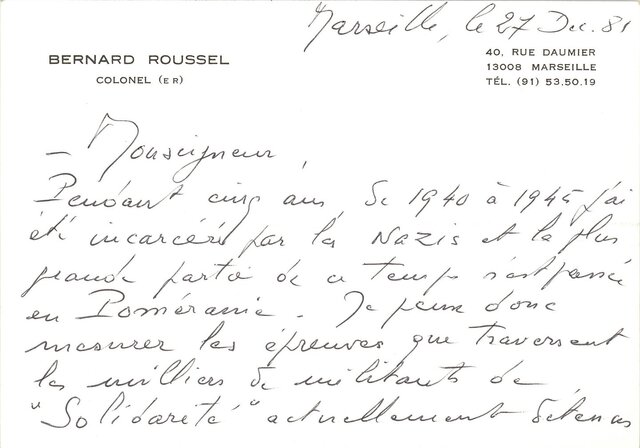 Marseille, le 27 Dec. 81
BERNARD ROUSSEL
COLONEL (E R)
40, RUE DAUMIER
13008 MARSEILLE
TÉL. (91) 53.50.19
- Monseigneur,
Pendant cinq ans de 1940 à 1945 j'ai
été incarcéré par les Nazis et la plus
grande partie de ce temps s'est passée
en Poméranie. Je peux donc
mesurer les épreuves que traversent
les milliers de militants de
"Solidarité" actuellement détenus